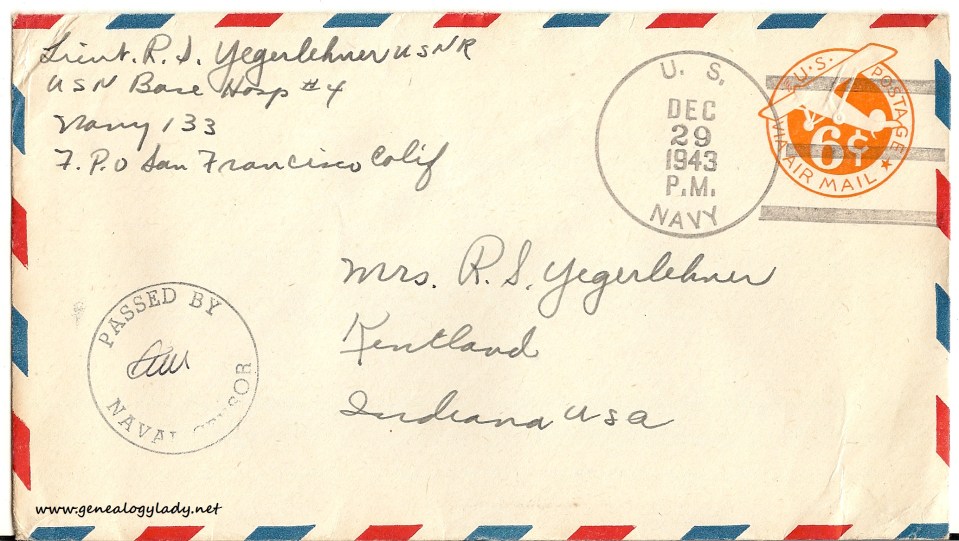 Lieut. R. S. Yegerlehner USNR
USN Base Hosp #4
Navy 133
F.P.O San Francisco Calif
U. S.
DEC
29
1943
P.M.
NAVY
U.S. POSTAGE
6¢
VIA AIR MAIL
Mrs. R. S. Yegerlehner
Kentland
Indiana USA
PASSED BY
NAVAL CENSOR
www.genealogylady.net